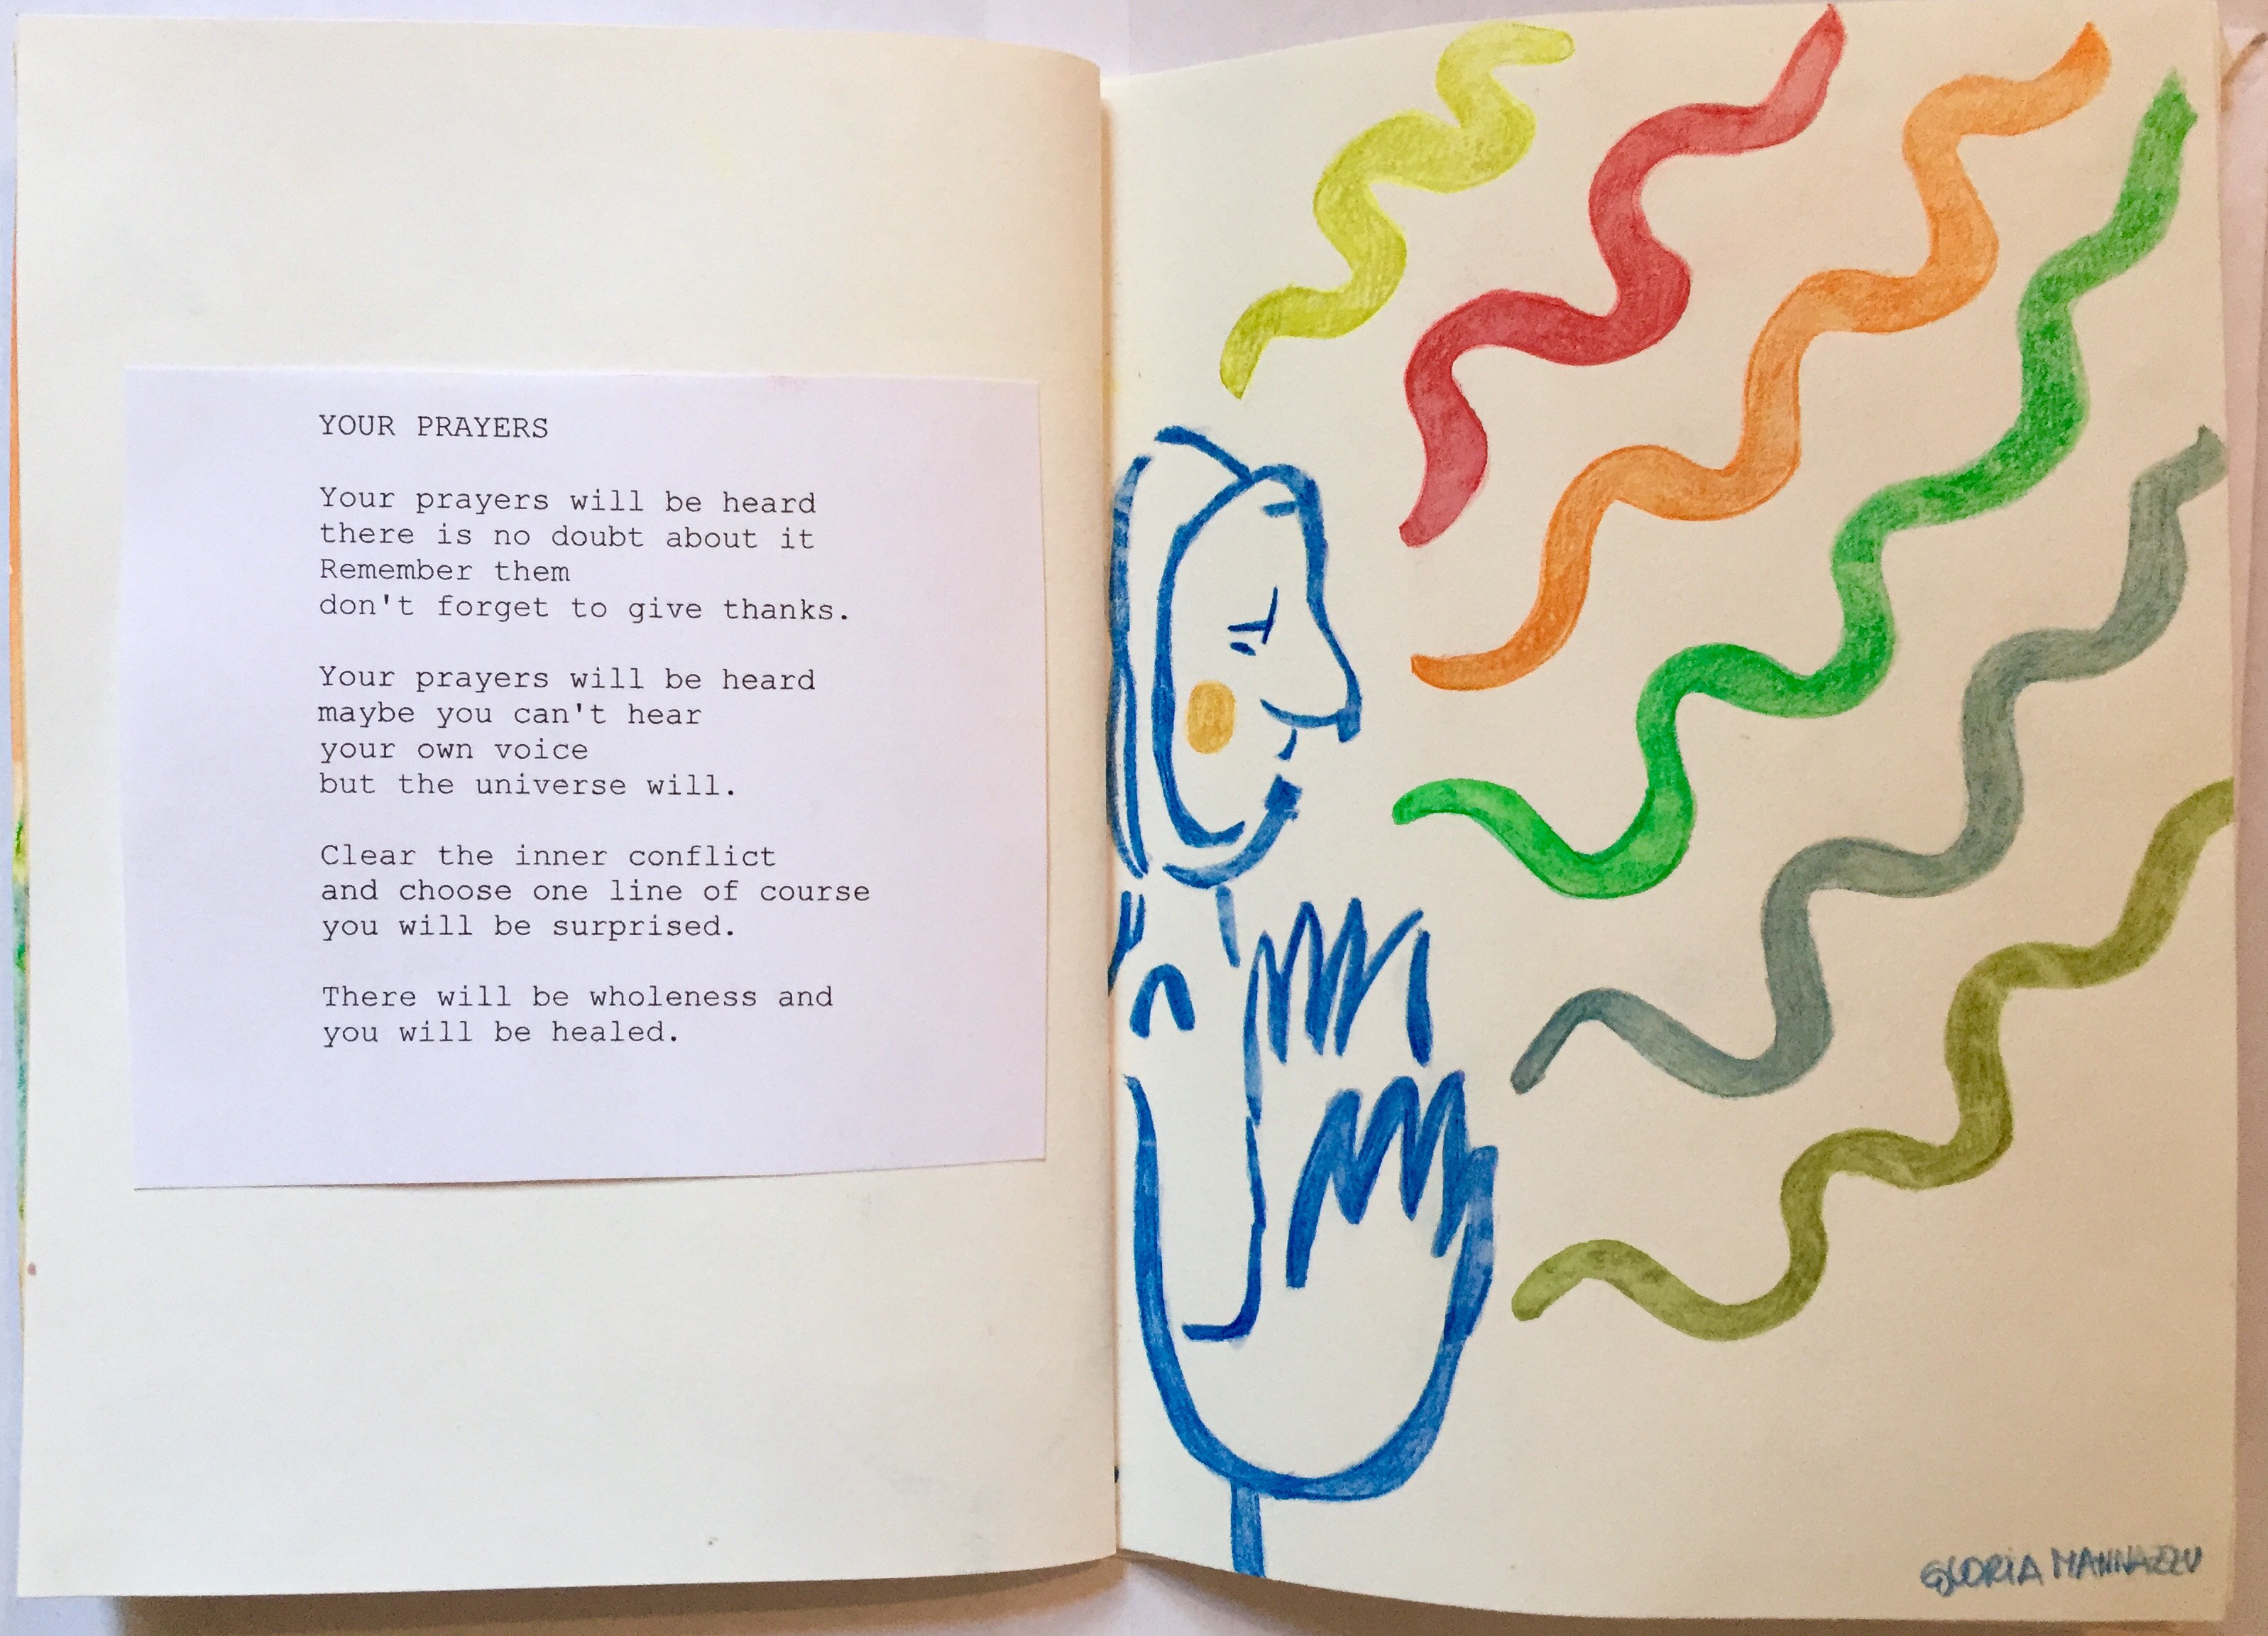 YOUR PRAYERS
Your prayers will be heard
there is no doubt about it
Remember them
don't forget to give thanks.
Your prayers will be heard
maybe you can't hear
your own voice
but the universe will.
Clear the inner conflict
and choose one line of course
you will be surprised.
There will be wholeness and
you will be healed.
GLORIA MANNAZZU